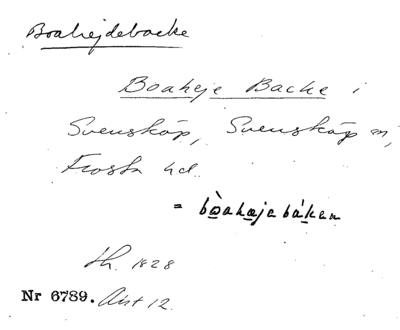 Boahejdebacke
Boaheje Backe i
Svensköp, Svensköp sn,
Frosta hd.
= bòahajebáken
lh. 1828
Nr 6789. Avst 12.